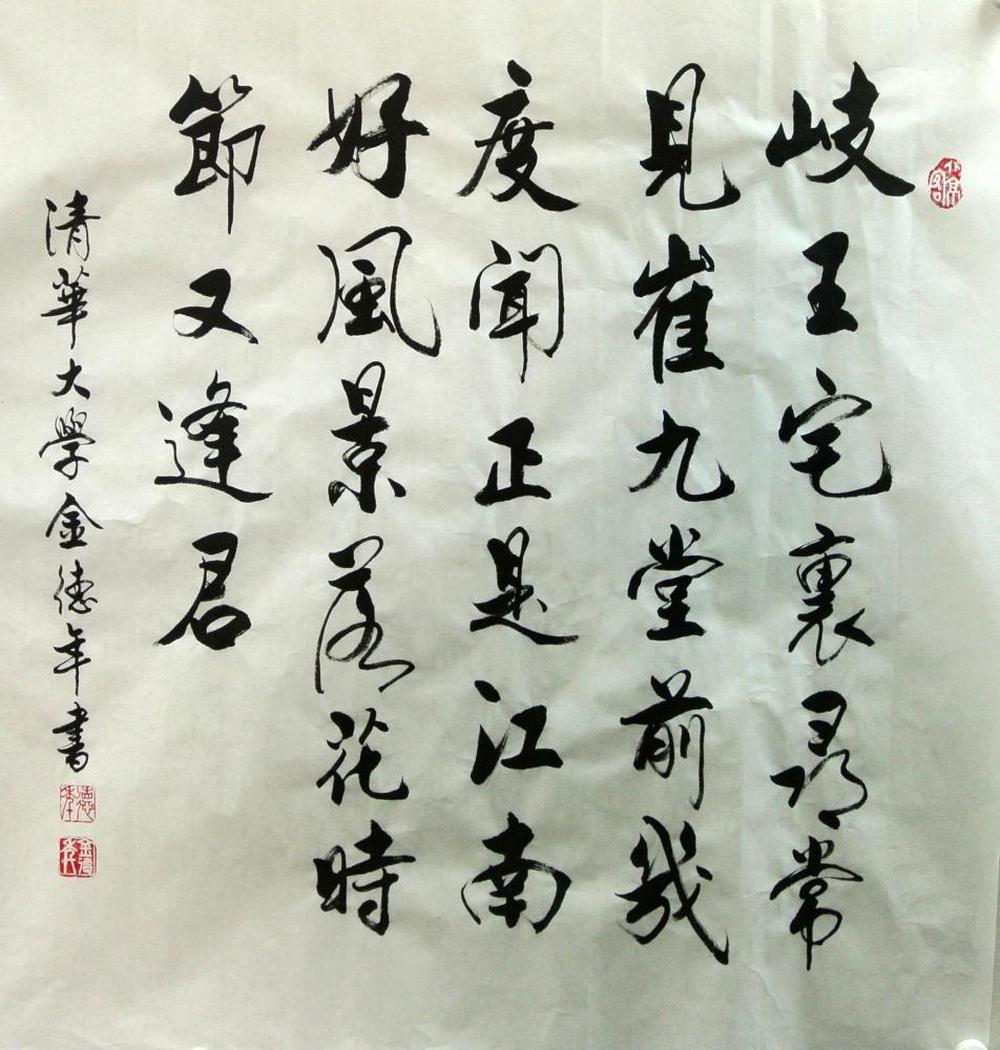 岐王宅裏尋常
見崔九堂前幾
度聞正是江南
好風景落花時
節又逢君
清華大學金德年書